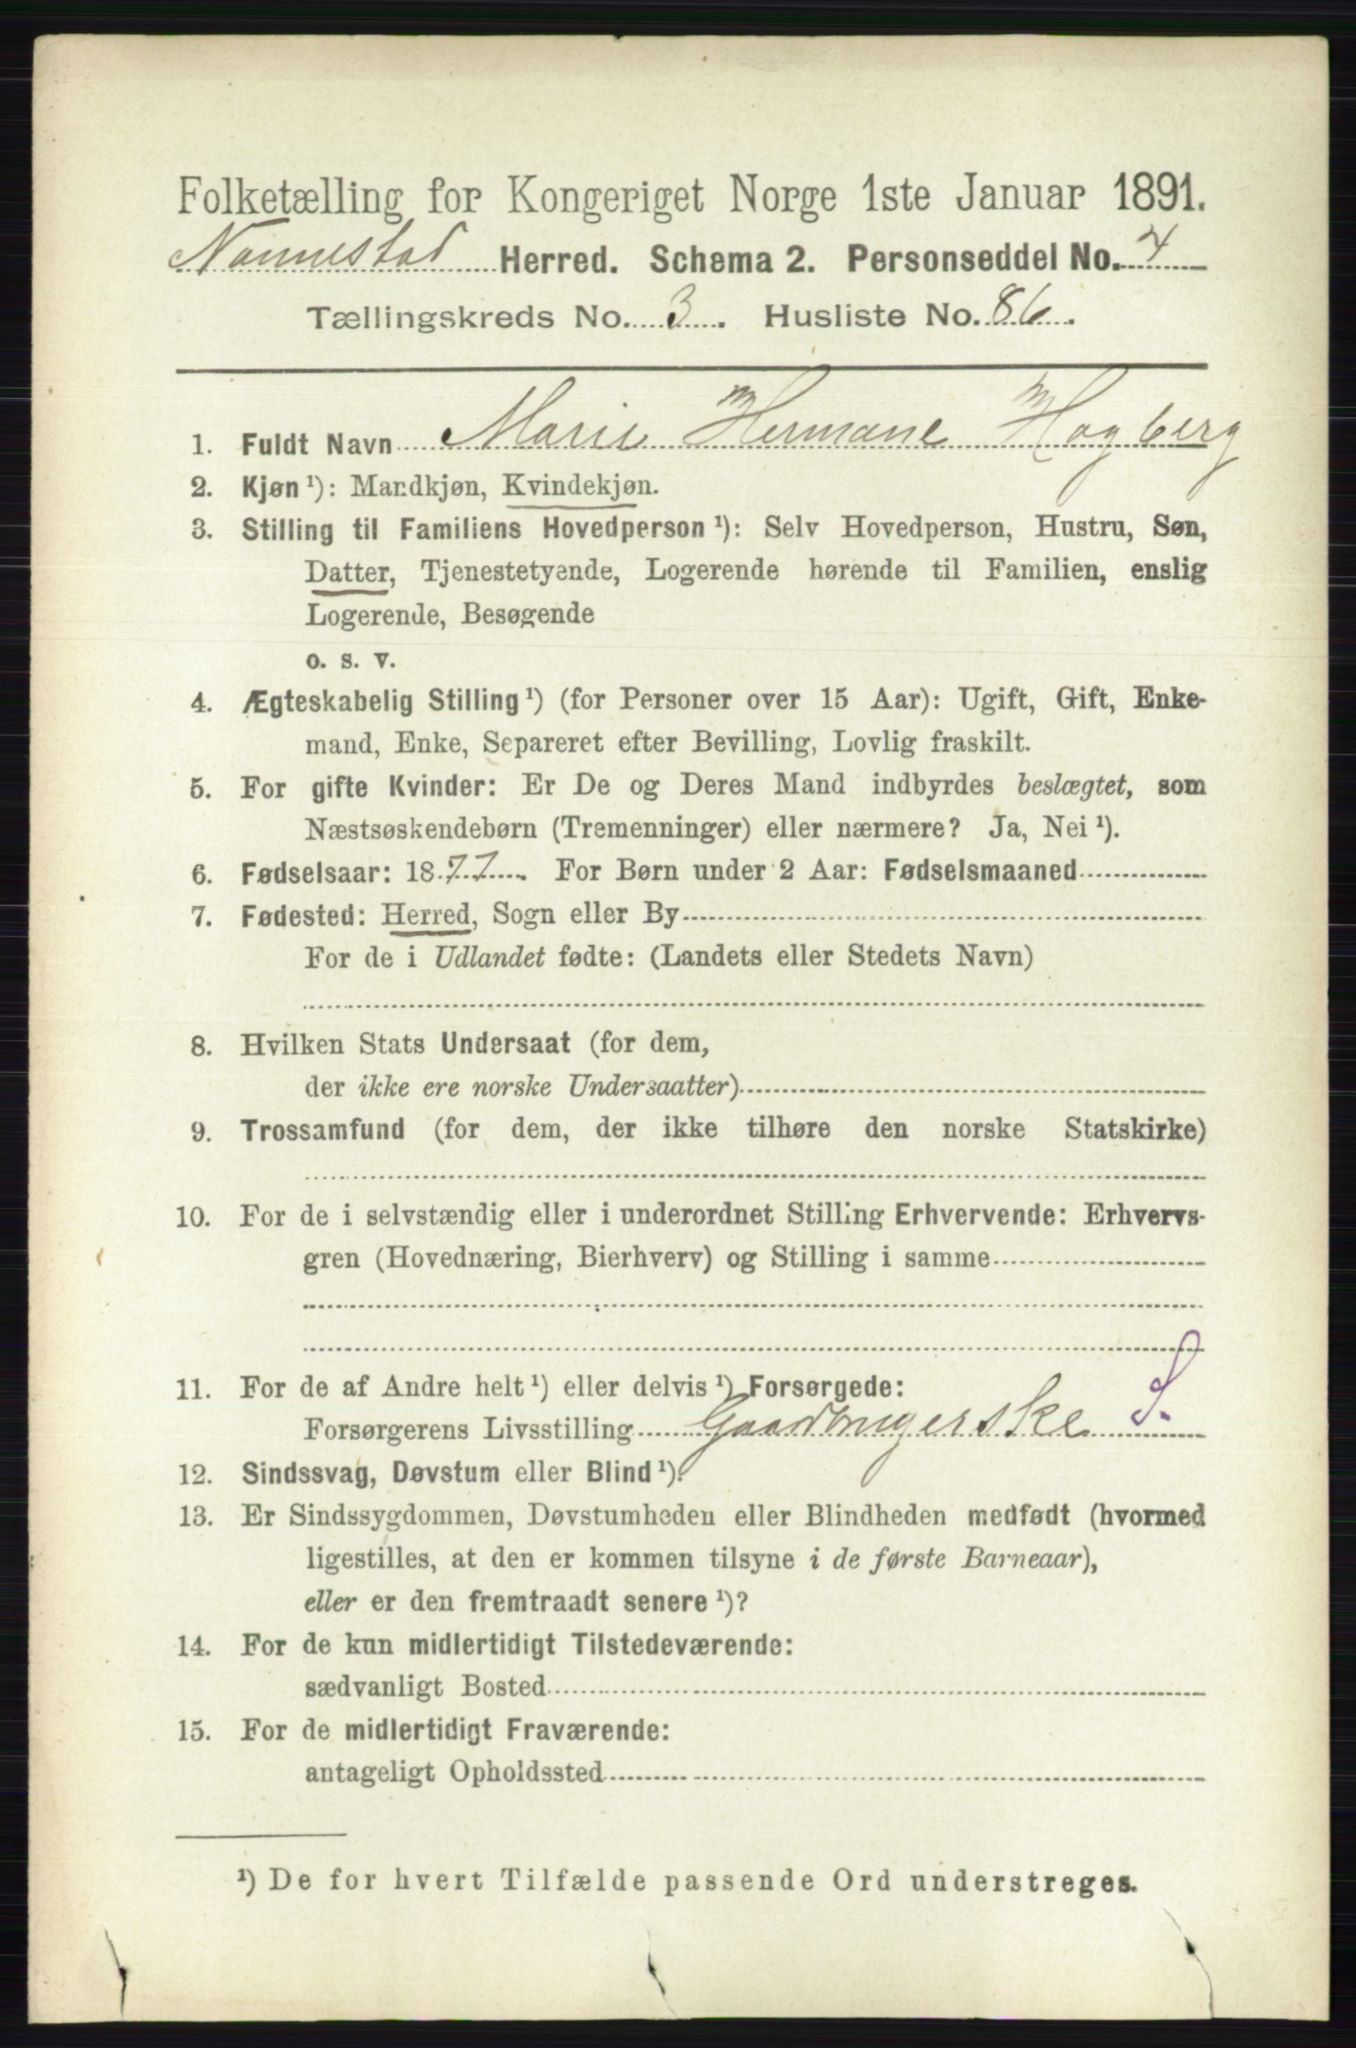 Folketælling for Kongeriget Norge 1ste Januar 1891.
Nannestad Herred. Schema 2. Personseddel No. 4
Tællingskreds No. 3. Husliste No. 86.
1. Fuldt Navn Marie Hermane Hagberg
2. Kjøn ¹): Mandkjøn, Kvindekjøn.
3. Stilling til Familiens Hovedperson ¹): Selv Hovedperson, Hustru, Søn,
Datter, Tjenestetyende, Logerende hørende til Familien, enslig
Logerende, Besøgende
o. s. v.
4. Ægteskabelig Stilling ¹) (for Personer over 15 Aar): Ugift, Gift, Enke-
mand, Enke, Separeret efter Bevilling, Lovlig fraskilt.
5. For gifte Kvinder: Er De og Deres Mand indbyrdes beslægtet, som
Næstsøskendebørn (Tremenninger) eller nærmere? Ja, Nei ¹).
6. Fødselsaar: 1877. For Børn under 2 Aar: Fødselsmaaned
7. Fødested: Herred, Sogn eller By
For de i Udlandet fødte: (Landets eller Stedets Navn)
8. Hvilken Stats Undersaat (for dem,
der ikke ere norske Undersaatter)
9. Trossamfund (for dem, der ikke tilhøre den norske Statskirke)
10. For de i selvstændig eller i underordnet Stilling Erhvervende: Erhvervs-
gren (Hovednæring, Bierhverv) og Stilling i samme
11. For de af Andre helt ¹) eller delvis ¹) Forsørgede:
Forsørgerens Livsstilling Gaardbrugerske S.
12. Sindssvag, Døvstum eller Blind ¹).
13. Er Sindssygdommen, Døvstumheden eller Blindheden medfødt (hvormed
ligestilles, at den er kommen tilsyne i de første Barneaar),
eller er den fremtraadt senere ¹)?
14. For de kun midlertidigt Tilstedeværende:
sædvanligt Bosted
15. For de midlertidigt Fraværende:
antageligt Opholdssted
¹) De for hvert Tilfælde passende Ord understreges.